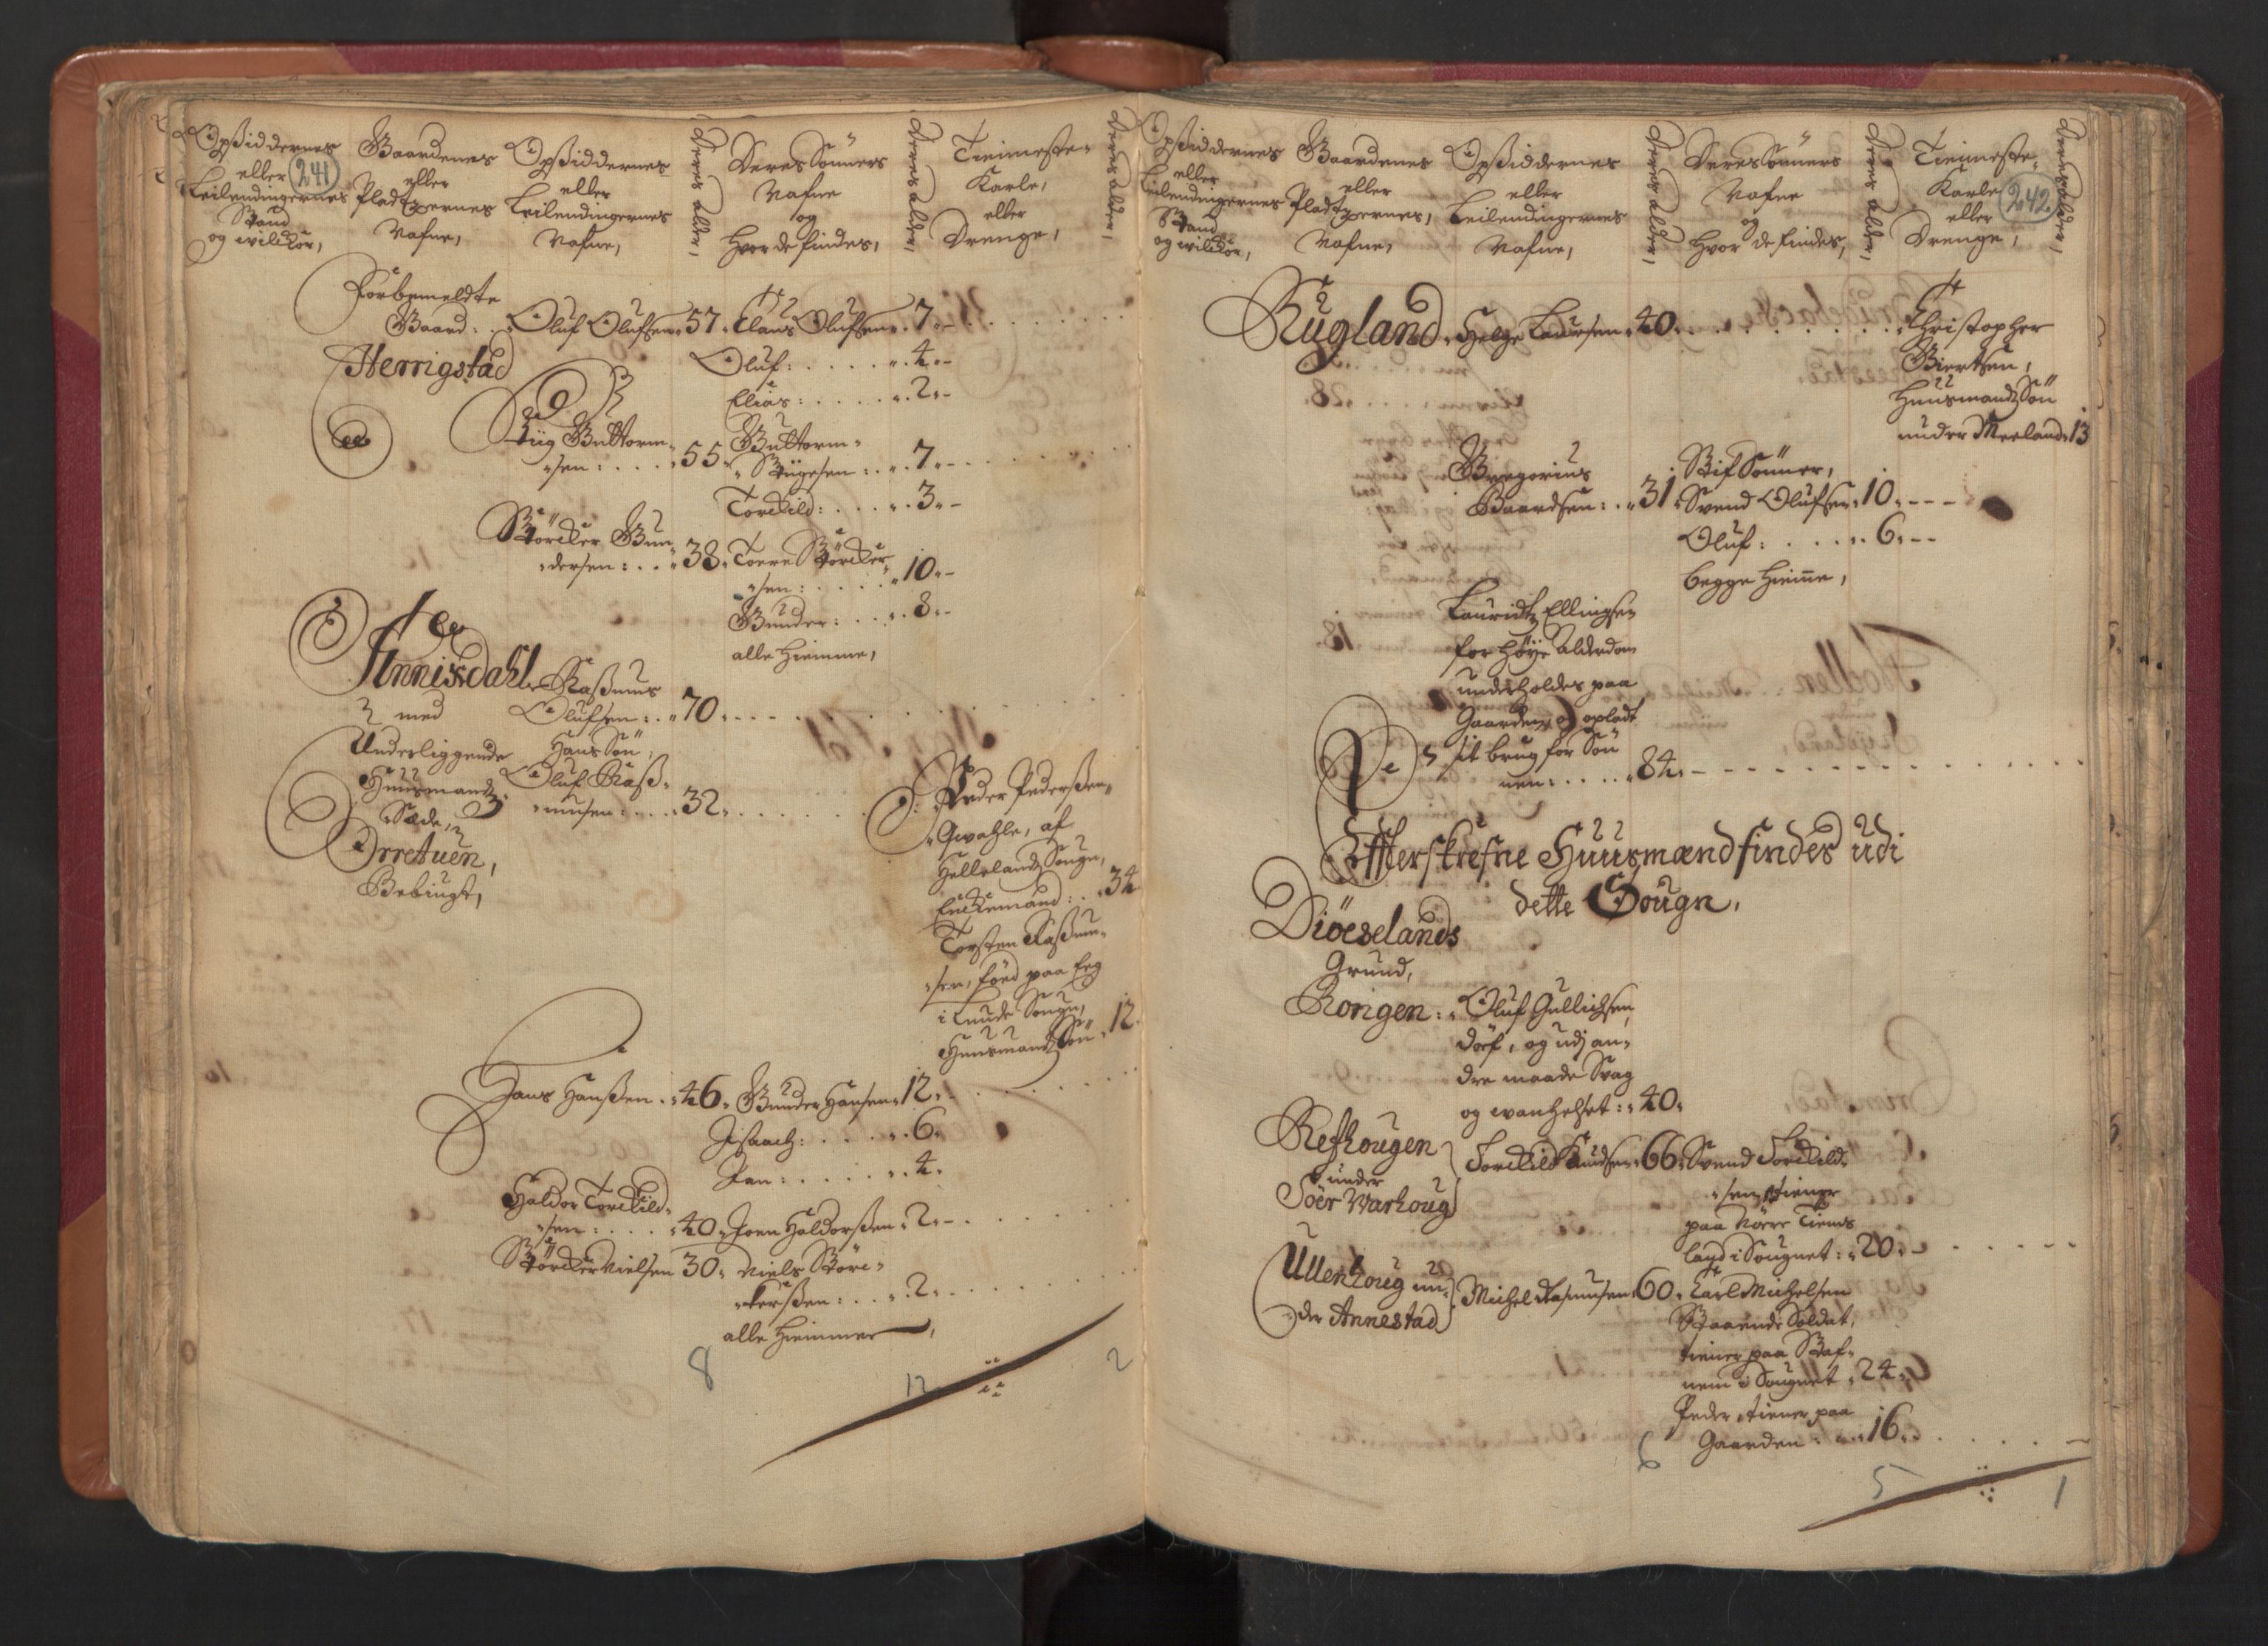 Opsiddernes
eller
Leilendingernes
Stand
og wilckor,
241
Gaardenes
eller
Pladtzernes
Nafne,
Opsiddernes
eller
Leilendingernes
Nafne,
Deres Alder,
Deres Sönners
Nafne
og
hvor de findes,
Deres Alder,
Tienneste-
Karle,
eller
Drenge,
Deres Alder,
Forbemeldte
Gaard: Oluf Olufsen 57. Claus Olufsen 7.
Herrigstad
Oluf: 4.
Elias: 2.
Stüg Guttorm-
sen: 55. Guttorm
Stügesen: 7.
Torckild: 3.
Störcker Gun-
dersen: 38. Toere Störcker-
sen: 10.
Gunder: 8.
alle hiemme,
Annisdahl Rasmus
med Olufsen: 70.
Underliggende Hans Sön
Huusmandz Oluf Rass-
Sæde, musen: 32.
Orretuen,
Bebiugt,
Peder Pederssen
Qwahle, af
Hellelandz Sougn,
Enckemand: 34
Torsten Rassmu-
sen, föed paa Eeg
i Lunde Sougn,
Huusmandz Sön 12.
Hans Hanssen 46. Gunder Hansen 12.
Isaach: 6.
Jan: 4.
Haldor Torckild-
sen: 40. Joen Haldorssen 2.
Störcker Nielsen 30. Niels Störc-
kerssen: 2.
alle hiemme,
8
12
2
Opsiddernes
eller
Leilendingernes
Stand
og wilckor,
Gaardenes
eller
Pladtzernes,
Nafne,
Opsiddernes
eller
Leilendingernes
Nafne,
Deres Alder,
Deres Sönners
Nafne
og
hvor de findes,
Deres Alder,
Tienneste-
Karle
eller
Drenge,
242
Deres Alder,
Rügland. Helge Laursen 40. Christopher
Biertsen,
Huusmandz Sön
under Meeland 13
Gregorius Stif Sönner,
Baardsen: 31. Svend Olufsen 10.
Oluf: 6.
begge hiemme,
Lauridtz Ellingsen
for höye Alderdom
underholdes paa
Gaarden, og opladt
sit brug for Sön
nen: 84.
Effterskrefne Huusmænd findes udi
dette Sougn.
Diöeselands
Grund,
Rorigen: Oluf Gullichsen
döef, og udj an-
dre maade Svag
og wanhelset: 40.
Refhougen
under
Söer Warhoug Torckild Knudsen 66. Svend Torckild-
sen, tiener
paa Nörre Tiems
land i Sougnet: 20.
Ullenhoug un-
der Annestad Michel Rasmusen 60. Carl Michelsen
Staaende Soldat,
tiener paa Staf-
nem i Sougnet 24.
Peder, tiener paa
Gaarden: 16.
6
5
1